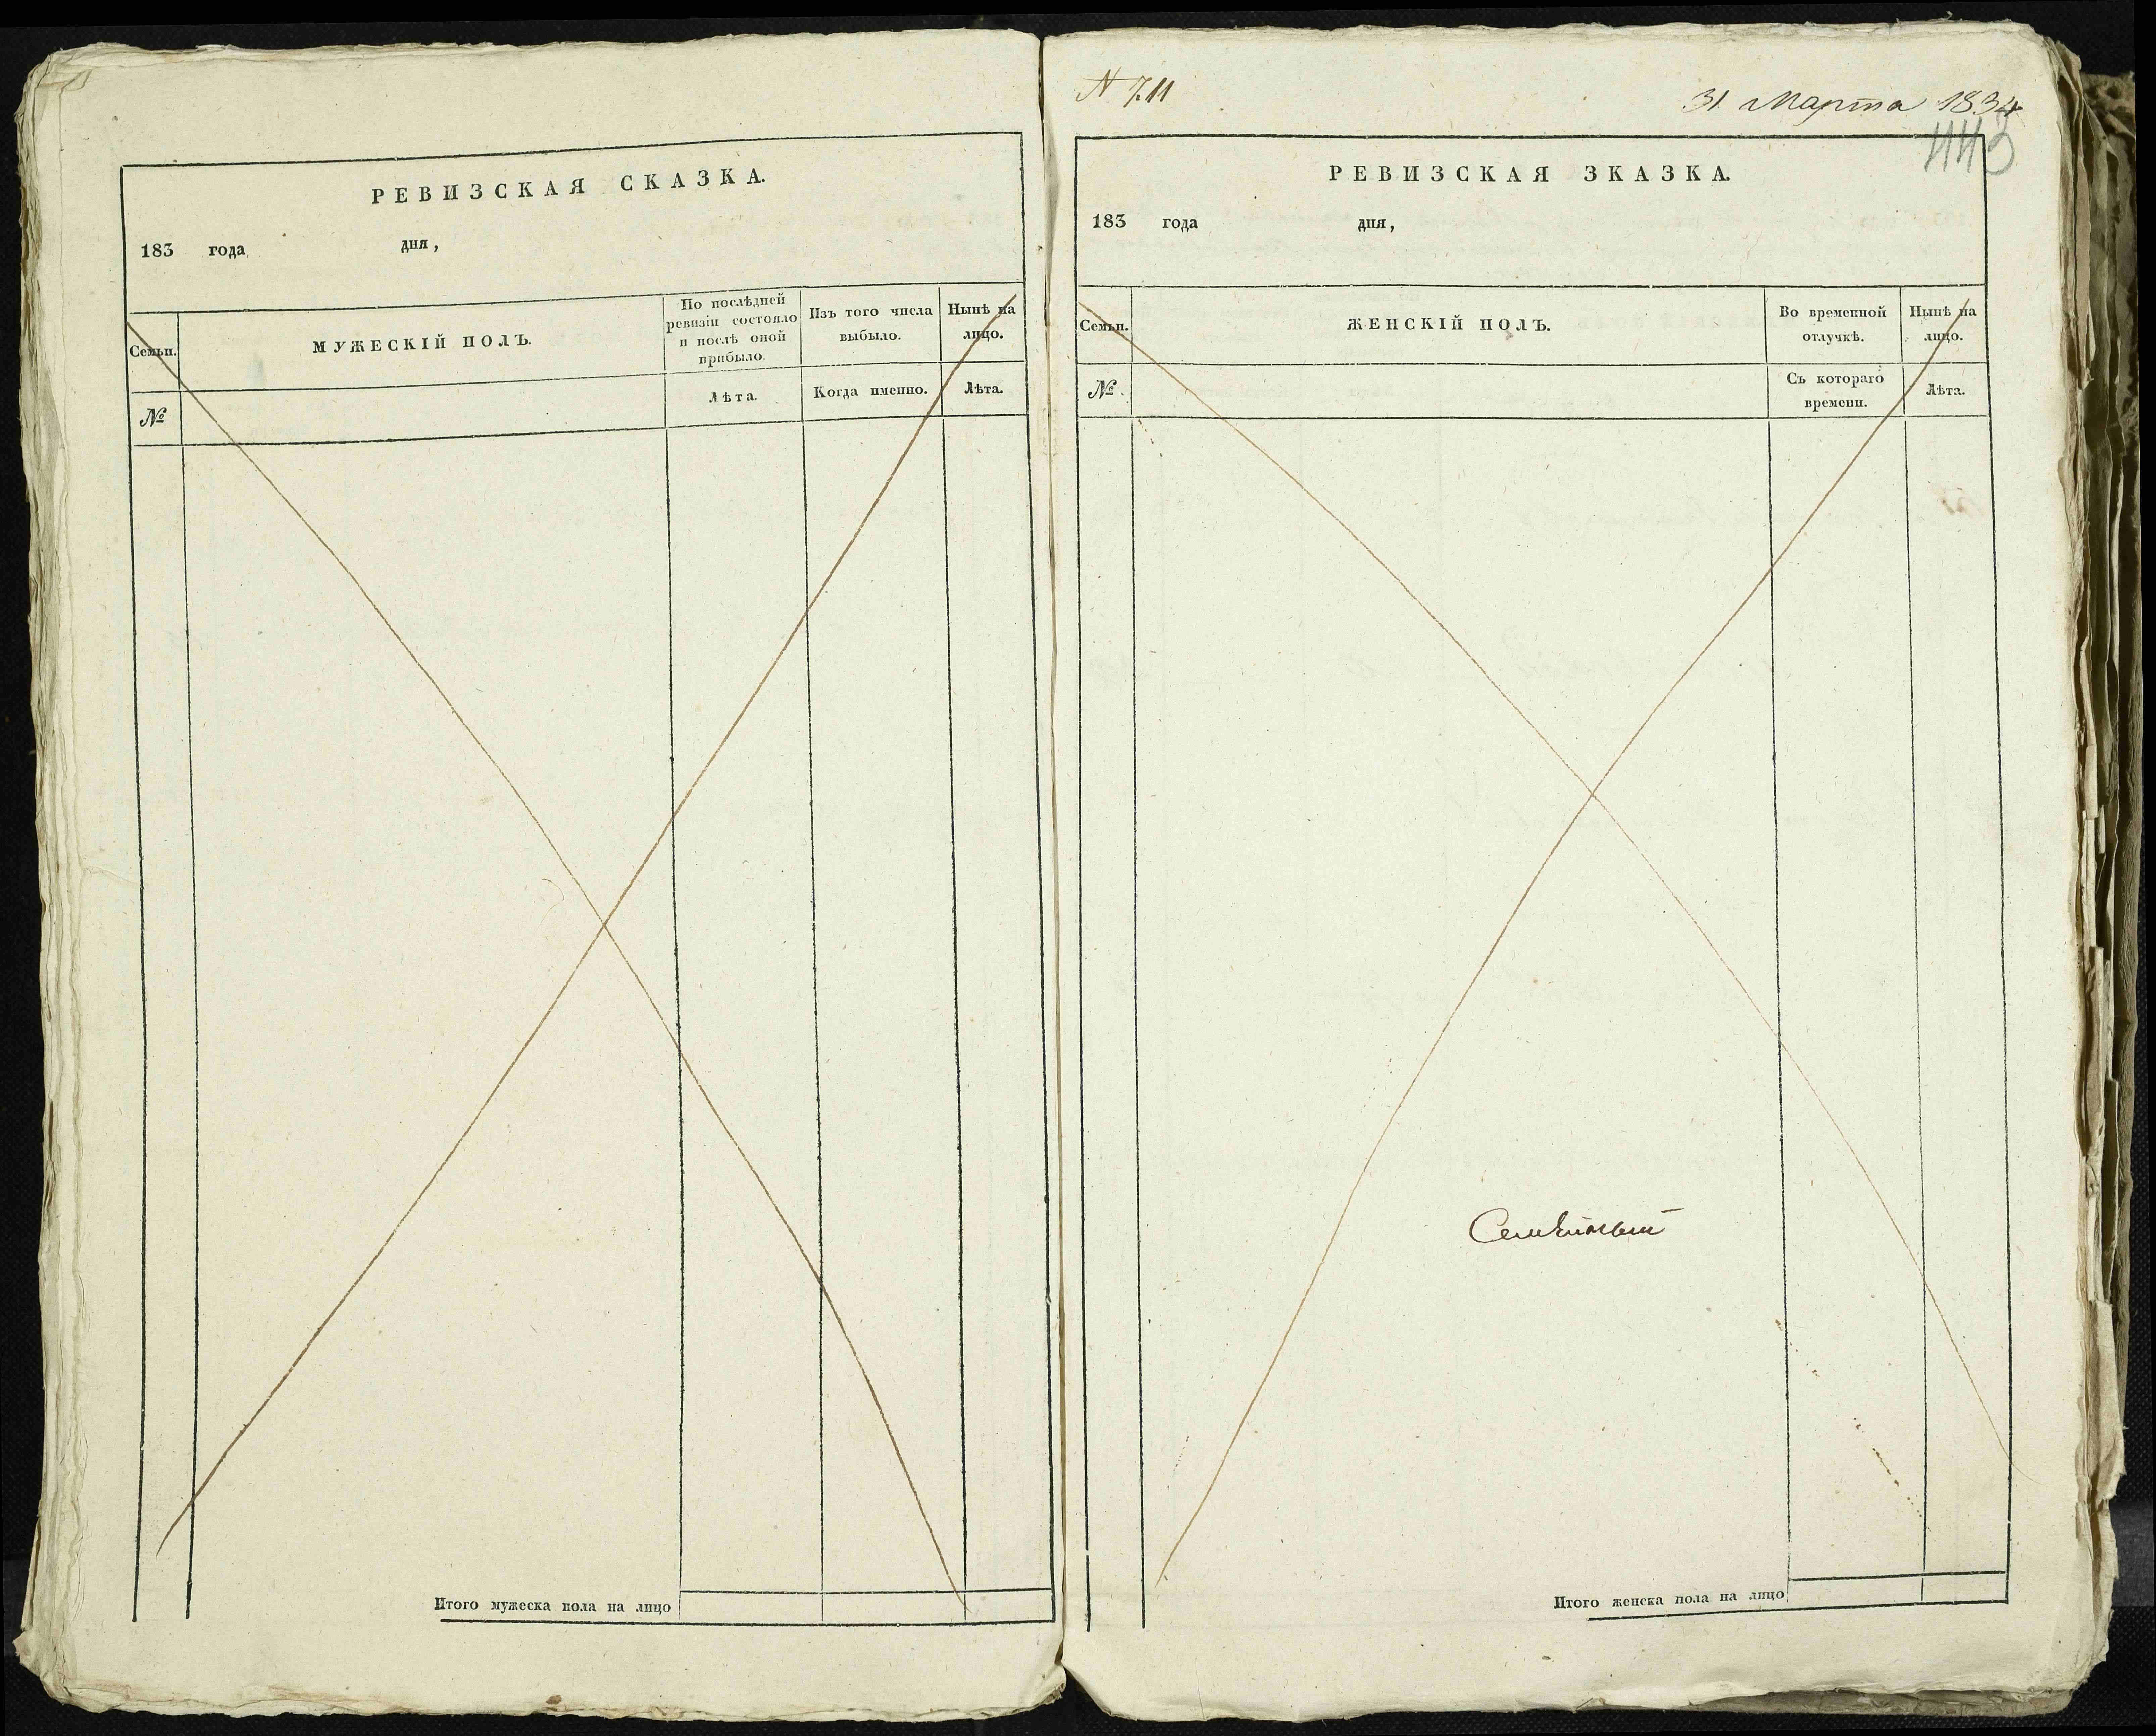 РЕВИЗСКАЯ СКАЗКА.
183 года дня,
Семьи.
МУЖЕСКІЙ ПОЛЪ.
По послѣдней
ревизіи состояло
и послѣ оной
прибыло.
Изъ того числа
выбыло.
Нынѣ на
лицо.
№
Лѣта.
Когда именно.
Лѣта.
Итого мужеска пола на лицо
N 711
31 Марта 1834
443
РЕВИЗСКАЯ ЗКАЗКА.
183 года дня,
Семьи.
ЖЕНСКІЙ ПОЛЪ.
Во временной
отлучкѣ.
Нынѣ на
лицо.
№
Съ котораго
времени.
Лѣта.
Итого женска пола на лицо